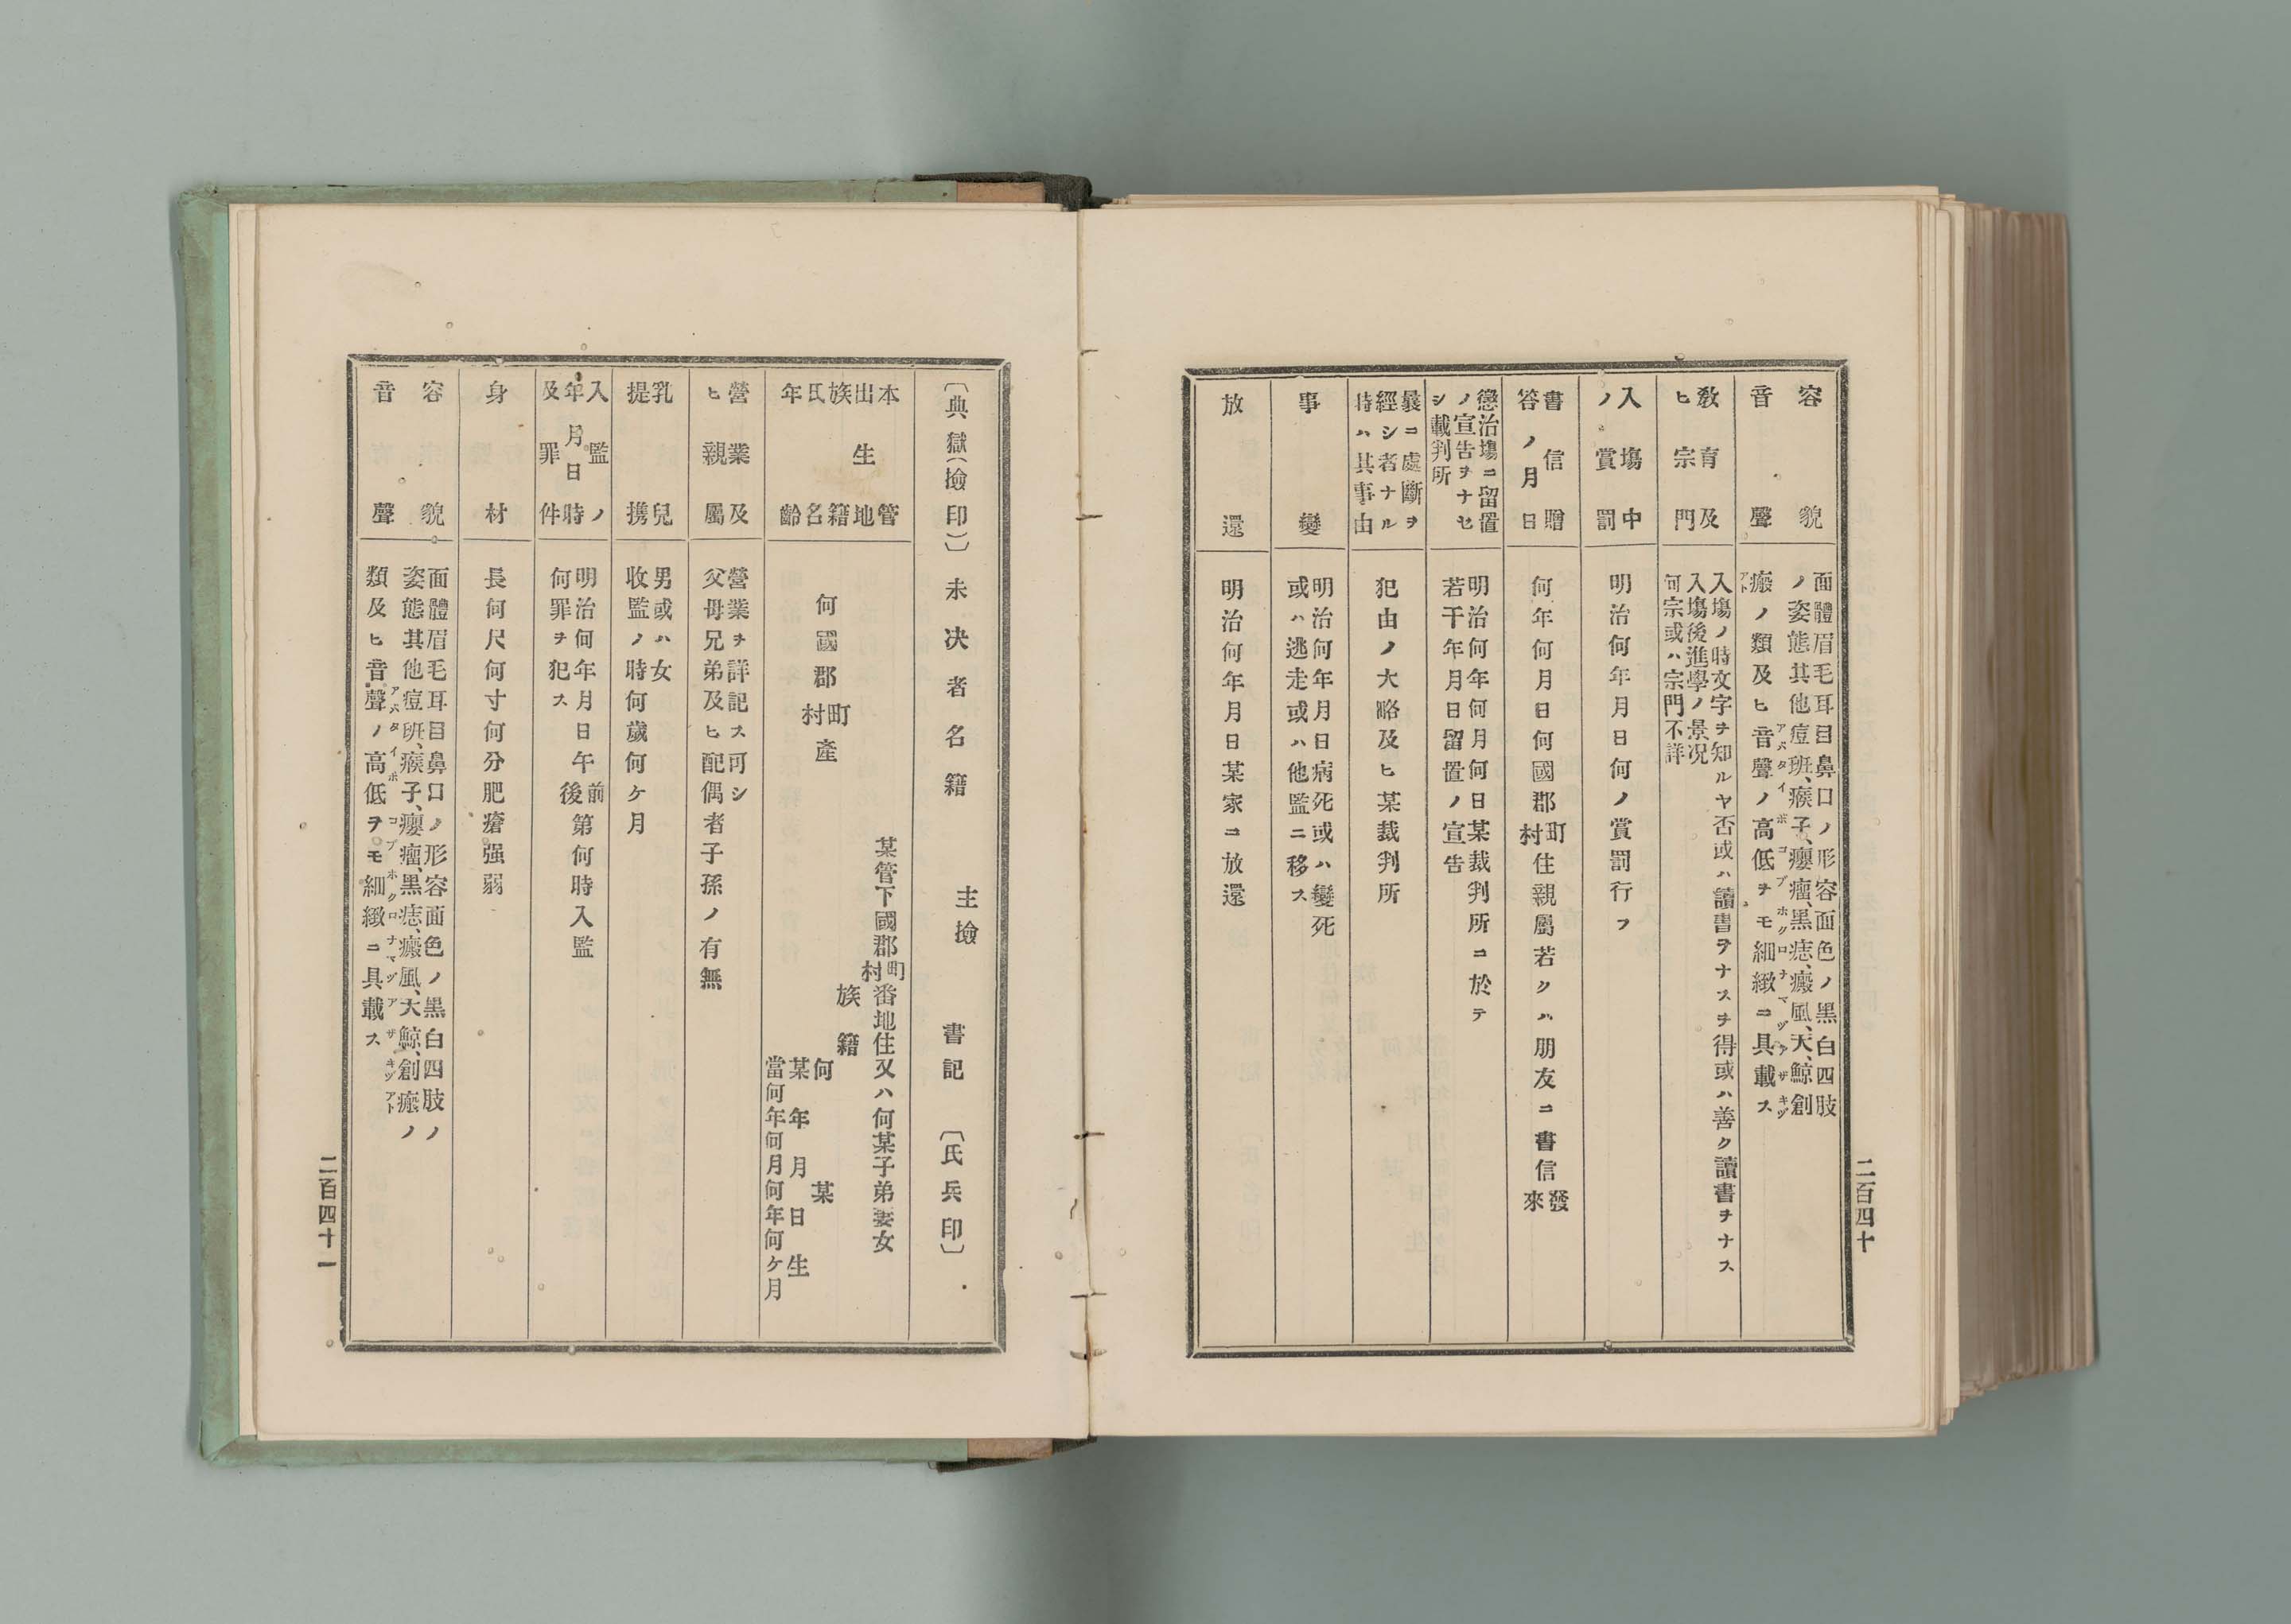 二百四十
容貌
音聲
面體眉毛耳目鼻口ノ形容面色ノ黒白四肢
ノ姿態其他痘班、瘊子、癭瘤、黒痣、癜風、天鯨、創
アバタイボコブホクロナマヅアザキヅ
瘢ノ類及ヒ音聲ノ高低ヲモ細緻ニ具載ス
アト
敎育及
ヒ宗門
入塲ノ時文字ヲ知ルヤ否或ハ讀書ヲナスヲ得或ハ善ク讀書ヲナス
入塲後進學ノ景況
何宗或ハ宗門不詳
入塲中
ノ賞罰
明治何年月日何ノ賞罰行フ
書信贈
答ノ月日
何年何月日何國郡町村住親屬若クハ朋友ニ書信發來
懲治塲ニ留置
ノ宣告ヲナセ
シ裁判所
明治何年何月何日某裁判所ニ於テ
若干年月日留置ノ宣告
曩ニ處斷ヲ
經シ者ナル
時ハ其事由
犯由ノ大略及ヒ某裁判所
事變
明治何年月日病死或ハ變死
或ハ逃走或ハ他監ニ移ス
放還
明治何年月日某家ニ放還
〔典獄(撿印)〕未決者名籍 主撿 書記 〔氏兵印〕
本管
出生地
族籍
氏名
年齡
某管下國郡町村番地住又ハ何某子弟妻女
族籍
何國郡町村產
何某
某年月日生
當何年何月何年何ケ月
營業及
ヒ親屬
營業ヲ詳記ス可シ
父母兄弟及ヒ配偶者子孫ノ有無
乳兒
提携
男或ハ女
收監ノ時何歲何ケ月
入監ノ
年月日時
及罪件
明治何年月日午前後第何時入監
何罪ヲ犯ス
身材
長何尺何寸何分肥瘠强弱
容貌
音聲
面體眉毛耳目鼻口ノ形容面色ノ黒白四肢ノ
姿態其他痘班、瘊子、癭瘤、黒痣、癜風、天鯨、創瘢ノ
アバタイボコブホクロナマヅアザキヅアト
類及ヒ音聲ノ高低ヲモ細緻ニ具載ス
二百四十一